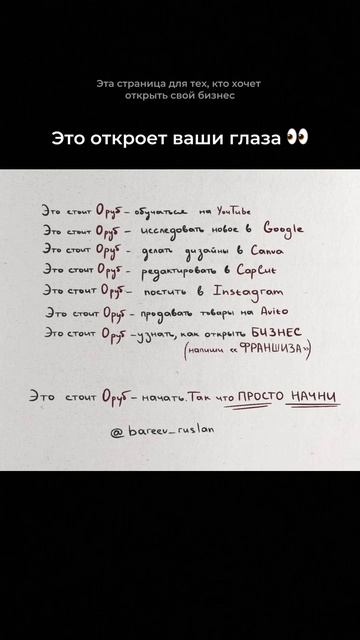 Эта страница для тех, кто хочет
открыть свой бизнес
Это откроет ваши глаза 👀
Это стоит 0руб - обучаться на YouTube
Это стоит 0руб - исследовать новое в Google
Это стоит 0руб - делать дизайны в Canva
Это стоит 0руб - редактировать в CapCut
Это стоит 0руб - постить в Instagram
Это стоит 0руб - продавать товары на Avito
Это стоит 0руб - узнать, как открыть БИЗНЕС
(напиши «ФРАНШИЗА»)
Это стоит 0руб - начать. Так что ПРОСТО НАЧНИ
@bareev_ruslan